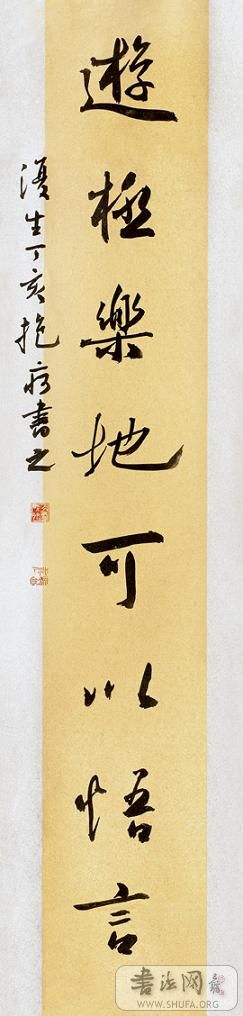 遊極樂地可以悟言
生丁亥抱疴書之
書法网
WWW.SHUFA.ORG